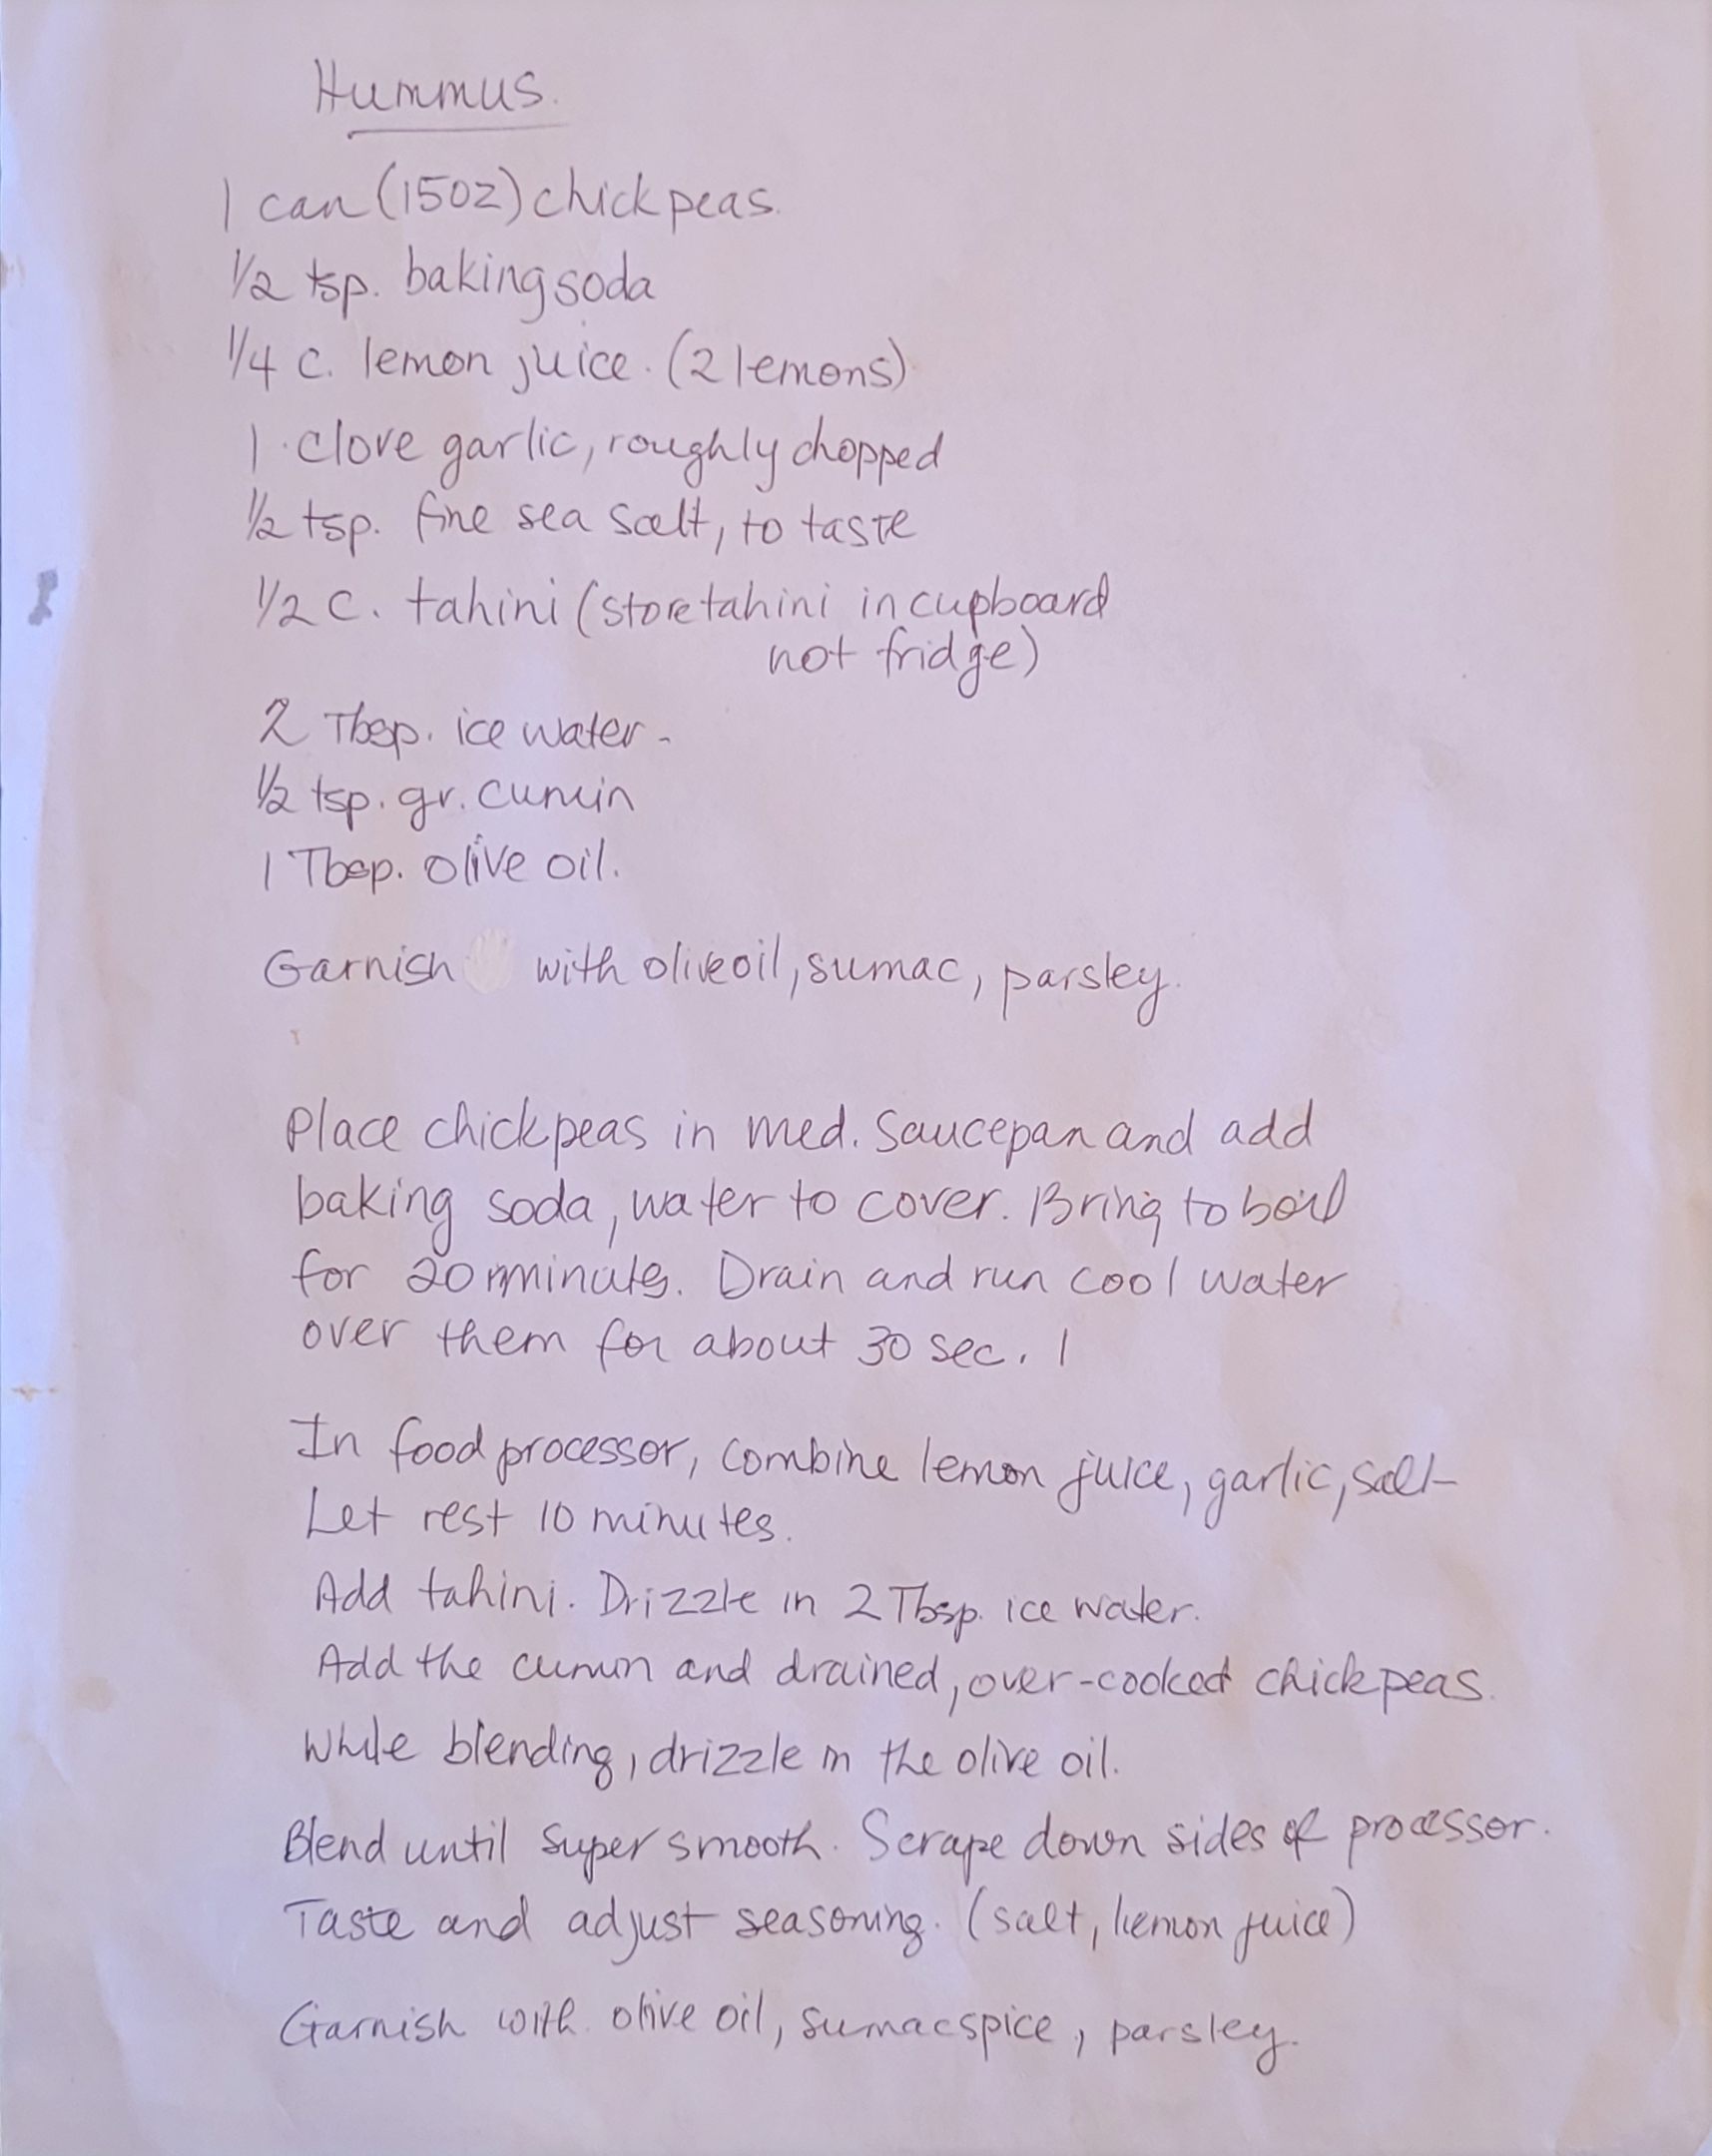 Hummus.
1 can (15oz) chick peas.
1/2 tsp. baking soda
1/4 c. lemon juice. (2 lemons)
1 clove garlic, roughly chopped
1/2 tsp. fine sea salt, to taste
1/2 c. tahini (store tahini in cupboard
not fridge)
2 Tbsp. ice water -
1/2 tsp. gr. cumin
1 Tbsp. olive oil.
Garnish with olive oil, sumac, parsley.
Place chickpeas in med. saucepan and add
baking soda, water to cover. Bring to boil
for 20 minutes. Drain and run cool water
over them for about 30 sec. 1
In food processor, combine lemon juice, garlic, salt
Let rest 10 minutes.
Add tahini. Drizzle in 2 Tbsp. ice water.
Add the cumin and drained, over-cooked chickpeas.
While blending, drizzle in the olive oil.
Blend until super smooth. Scrape down sides of processor.
Taste and adjust seasoning. (salt, lemon juice)
Garnish with olive oil, sumac spice, parsley.